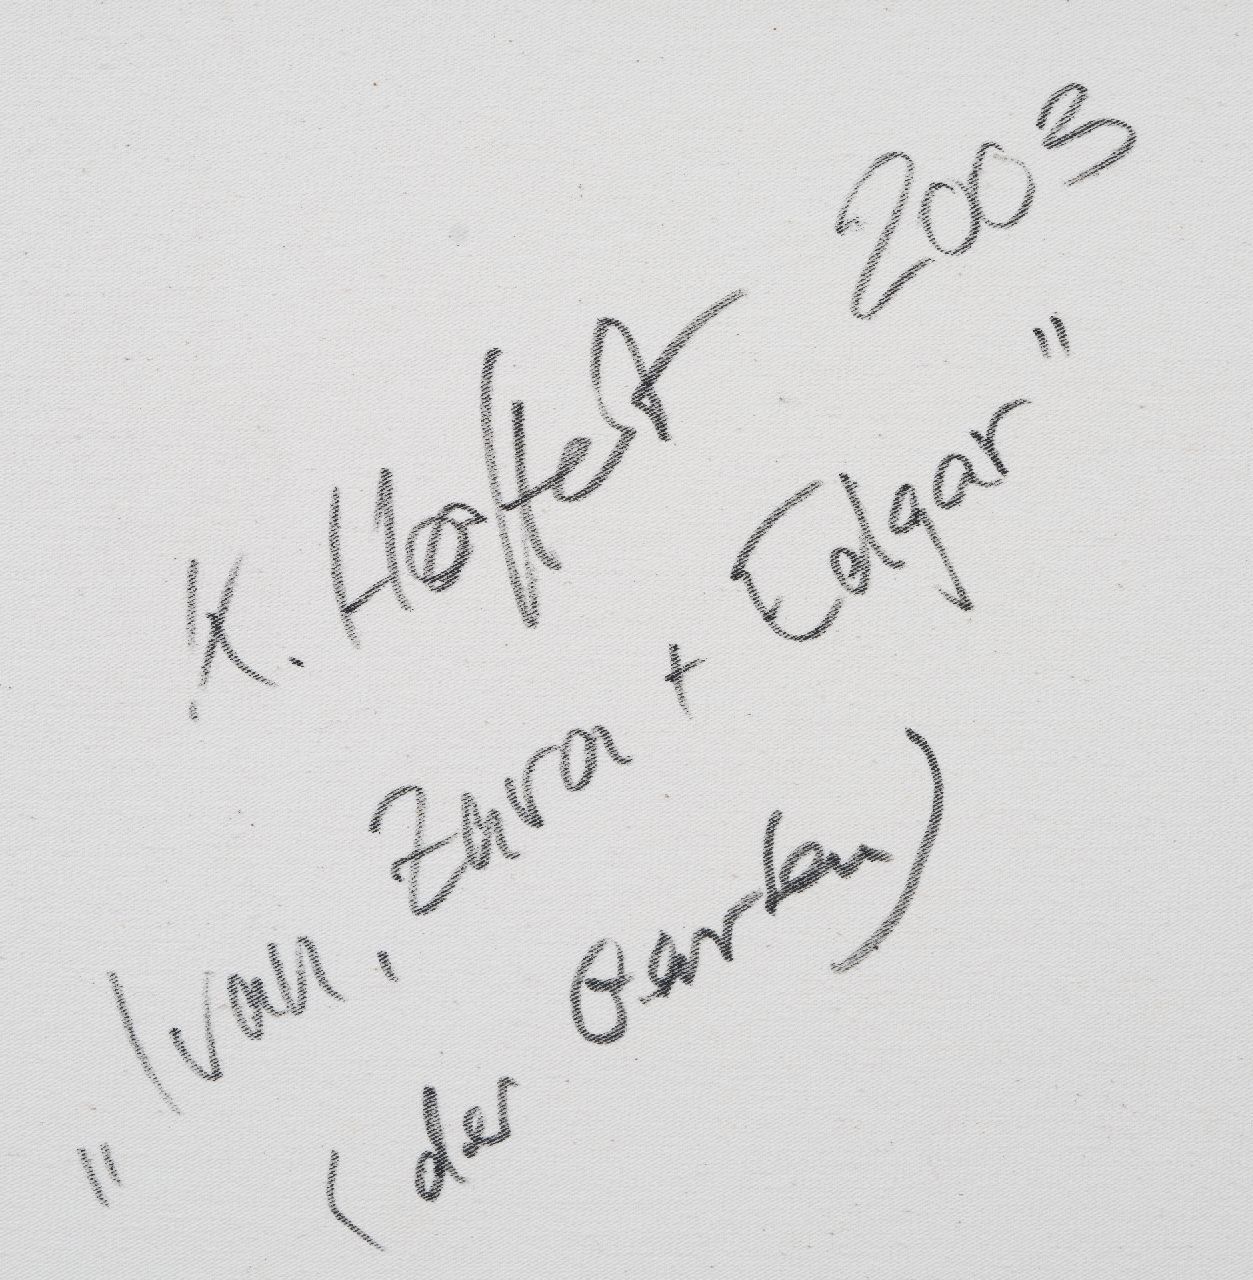 K. 2003
"Ivan, Zara + Edgar"
(der Garten)